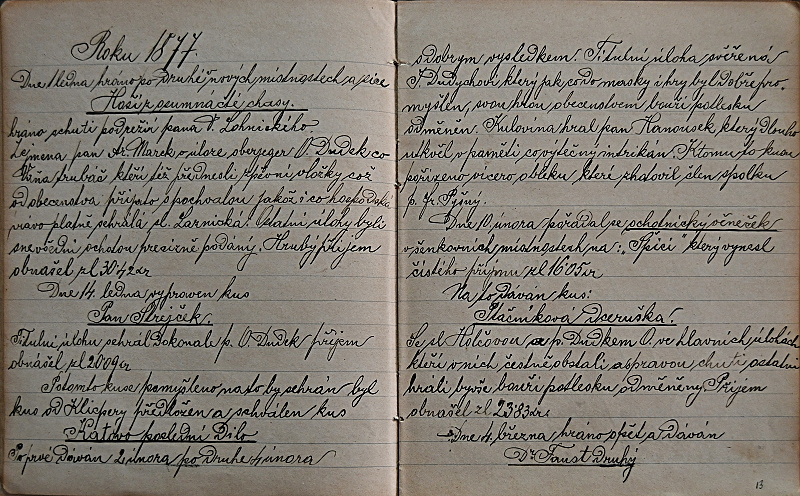 Roku 1877.
Dne 1 ledna hráno po druhé v nových místnostech a sice
Hoši z gumnácté chasy.
hráno s chutí pod režií pana V. Lohnického.
Zejmena pan Ar. Marek v úloze oberjeger O. Dudek co
trubač kteří též přednesli zpěvní vložky což
od obecenstva přijato s pochvalou jakož i co hospodská
pravo platně sehrála sl. Zarnická. Ostatní úlohy byli
s nevšední ochotou presizně podány. Hrubý příjem
obnášel zl 30.42 kr
Dne 14. ledna vypraven kus
Pan Strejček.
Titulní úlohu sehrál dokonale p. O. Dudek příjem
obnášel zl 20.09 kr
Po tomto kuse pomýšleno na to by sehrán byl
kus od Klicpery předložen a schválen kus
Katovo poslední Dílo
Po prvé dáván 2 února po druhé 4 února
s dobrym vysledkem. Titulní úloha svěřená
J. Dudychovi který jak co do masky i hry byl dobře pro-
myšlen, svou hrou obecenstvem bouří potlesku
odměněn. Kulovína hral pan Hanousek který dlouho
utkvěl v paměti co výtečný intrikán. K tomuto kusu
pořízeno vícero obleku které zhotovil člen spolku
p. Fr. Pyšný.
Dne 10. února pořádal se ochotnický věneček
v šenkovních místnostech na: "Špici" který vynesl
čistého příjmu zl 16 05 kr
Na to dáván kus:
Ptáčníková dceruška.
Se sl. Holcovou a p. Dudkem O. ve hlavních úlohách
kteří v nich čestně obstáli a spravou chutí ostatní
hráli byvše bouří potlesku odměněny. Příjem
obnášel zl 23 83 kr.
Dne 4. března hráno opět a dáván
Dr. Faust druhý
13